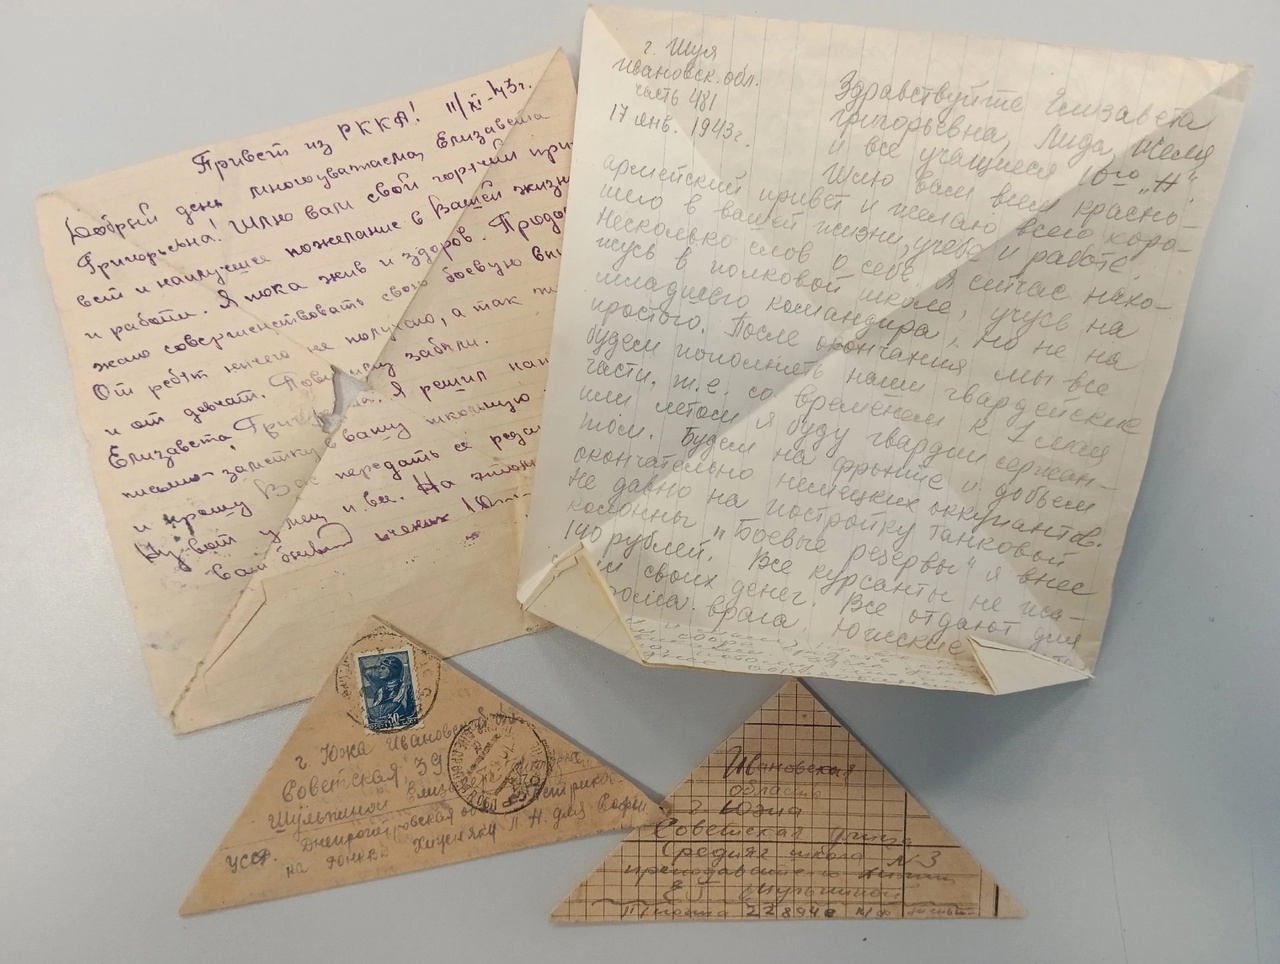 Привет из РККА! 11/XI-43г.
Добрый день многоуважаема Елизавета
Григорьевна! Шлю вам свой горячий при
вет и наилучшее пожелание в Вашей жизн
и работи. Я пока жив и здоров. Продо
жаю совершенствовать свою боевую
От ребят ничего не получаю, а так ж
и от девчат. забыли.
Елизавета Я решил
письмо-заметку в вашу школьную
и прошу Вас передать её
Ну вот у мен и все. На этом
Вам бывший ученик 10
г. Шуя
Ивановск. обл.
часть 481
17 янв. 1943г.
Здравствуйте Елизавета
Григорьевна, Лида, Женя
и все учащиеся 10го "А".
Шлю вам всем красно-
армейский привет и желаю всего хоро-
шего в вашей жизни, учебе и работе.
Несколько слов о себе. Я сейчас нахо-
жусь в полковой школе, учусь на
младшего командира, но не на
простого. После окончания мы все
будем пополнять наши гвардейские
части, т.е. со временем к 1 мая
или летом я буду гвардии сержан-
том. Будем на фронте и добьем
окончательно немецких оккупантов.
Не давно на постройку танковой
колонны "Боевые резервы" я внес
140 рублей. Все курсанты не
своих денег. Все отдают для
врага. Южские
30
г. Южа Ивановской
Советская, 39
Шульпиной
УССР. Днепропетровская
на
Ивановская
область
г. Южа
Советская улица
Средняя школа №3
преподавателю
Е Г Шульпиной